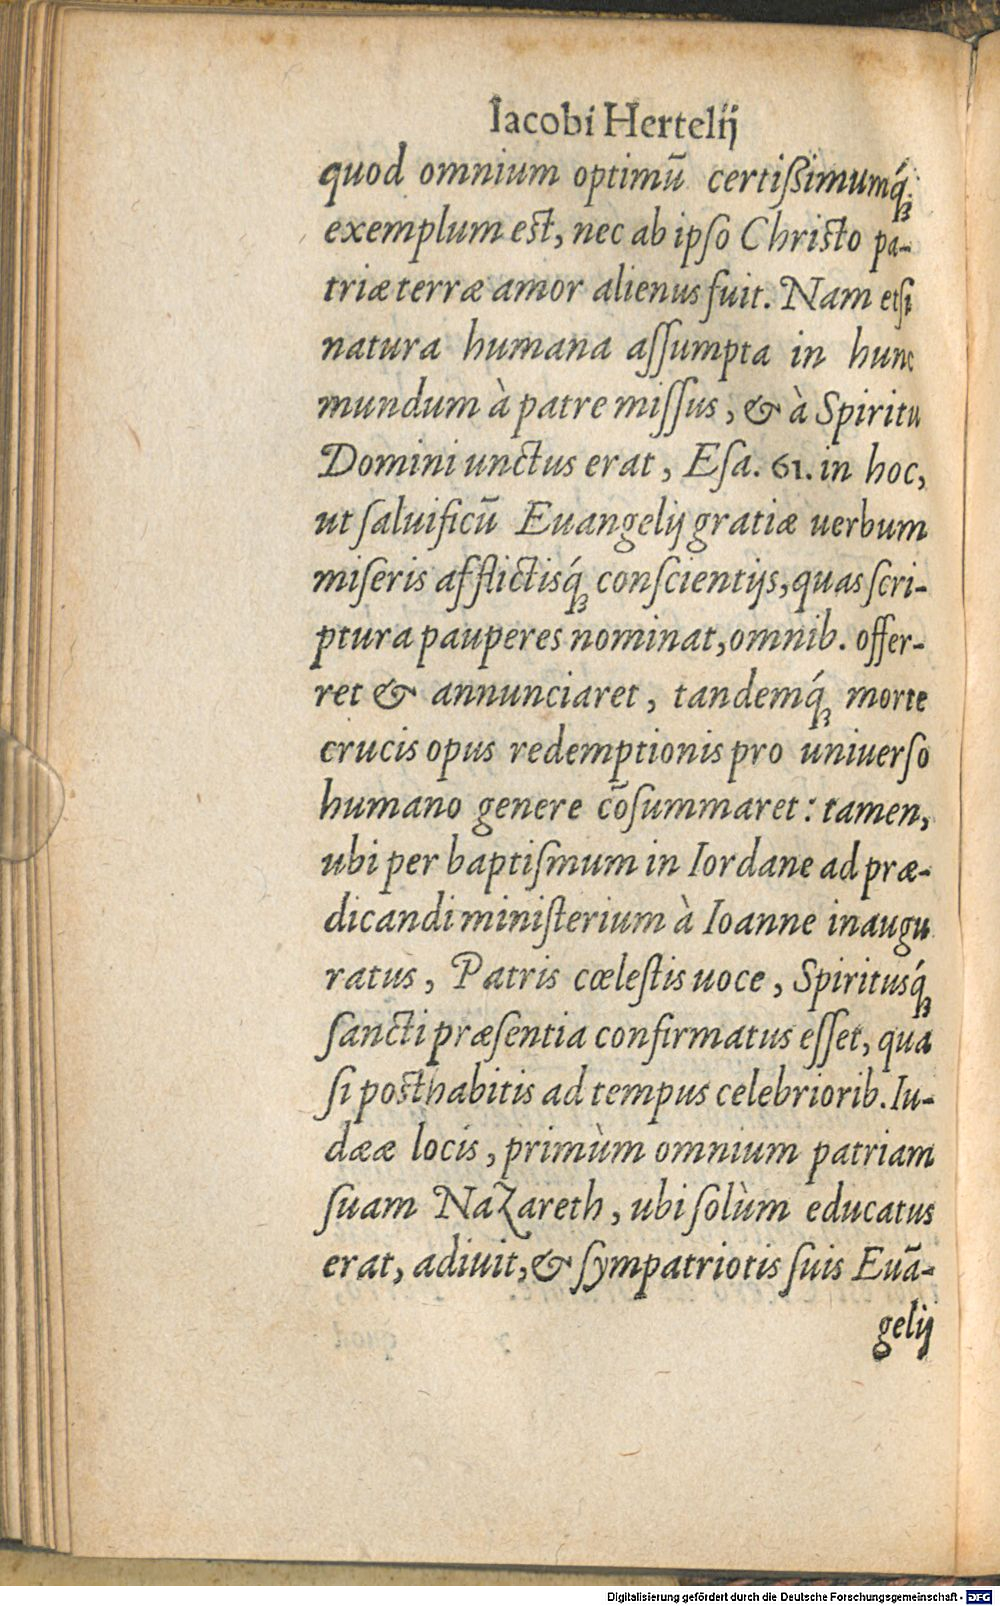 Iacobi Hertelij
quod omnium optimũ certiſsimumq́;
exemplum est, nec ab ipſo Christo pa-
triæ terræ amor alienus fuit. Nam etſi
natura humana aſſumpta in hunc
mundum à patre miſſus, & à Spiritu
Domini unctus erat, Eſa. 61. in hoc,
ut ſaluificũ Euangelij gratiæ uerbum
miſeris afflictisq́; conſcientijs, quas ſcri-
ptura pauperes nominat, omnib. offer-
ret & annunciaret, tandemq́; morte
crucis opus redemptionis pro uniuerſo
humano genere cõſummaret: tamen,
ubi per baptiſmum in Iordane ad præ-
dicandi miniſterium à Ioanne inaugu
ratus, Patris cœleſtis uoce, Spiritusq́;
ſancti præſentia confirmatus eſſet, qua
ſi posthabitis ad tempus celebriorib. Iu-
dææ locis, primùm omnium patriam
ſuam Nazareth, ubi ſolùm educatus
erat, adiuit, & ſympatriotis ſuis Euã-
gelij
Digitalisierung gefördert durch die Deutsche Forschungsgemeinschaft - DFG